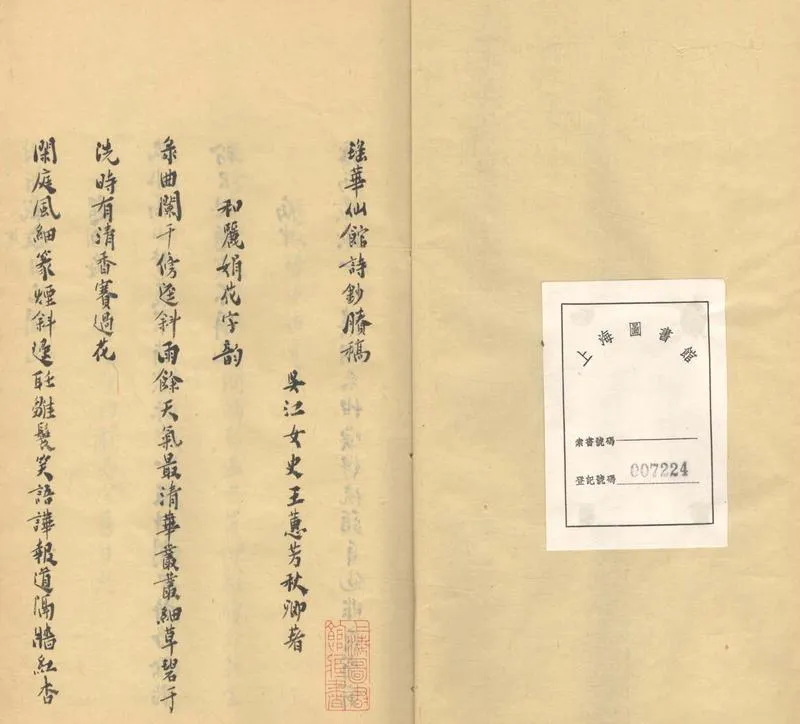 上海圖書館
索書號碼
登記號碼 007224
瑤華仙館詩鈔賸稿
吳江女史王蕙芳秋卿著
和麗娟花字韵
曲闌干傍逕斜雨餘天氣最清華叢叢細草碧于
洗時有清香賽過花
閑庭風細篆煙斜雛鬟笑語譁報道隔牆紅杏
上海圖書館藏書